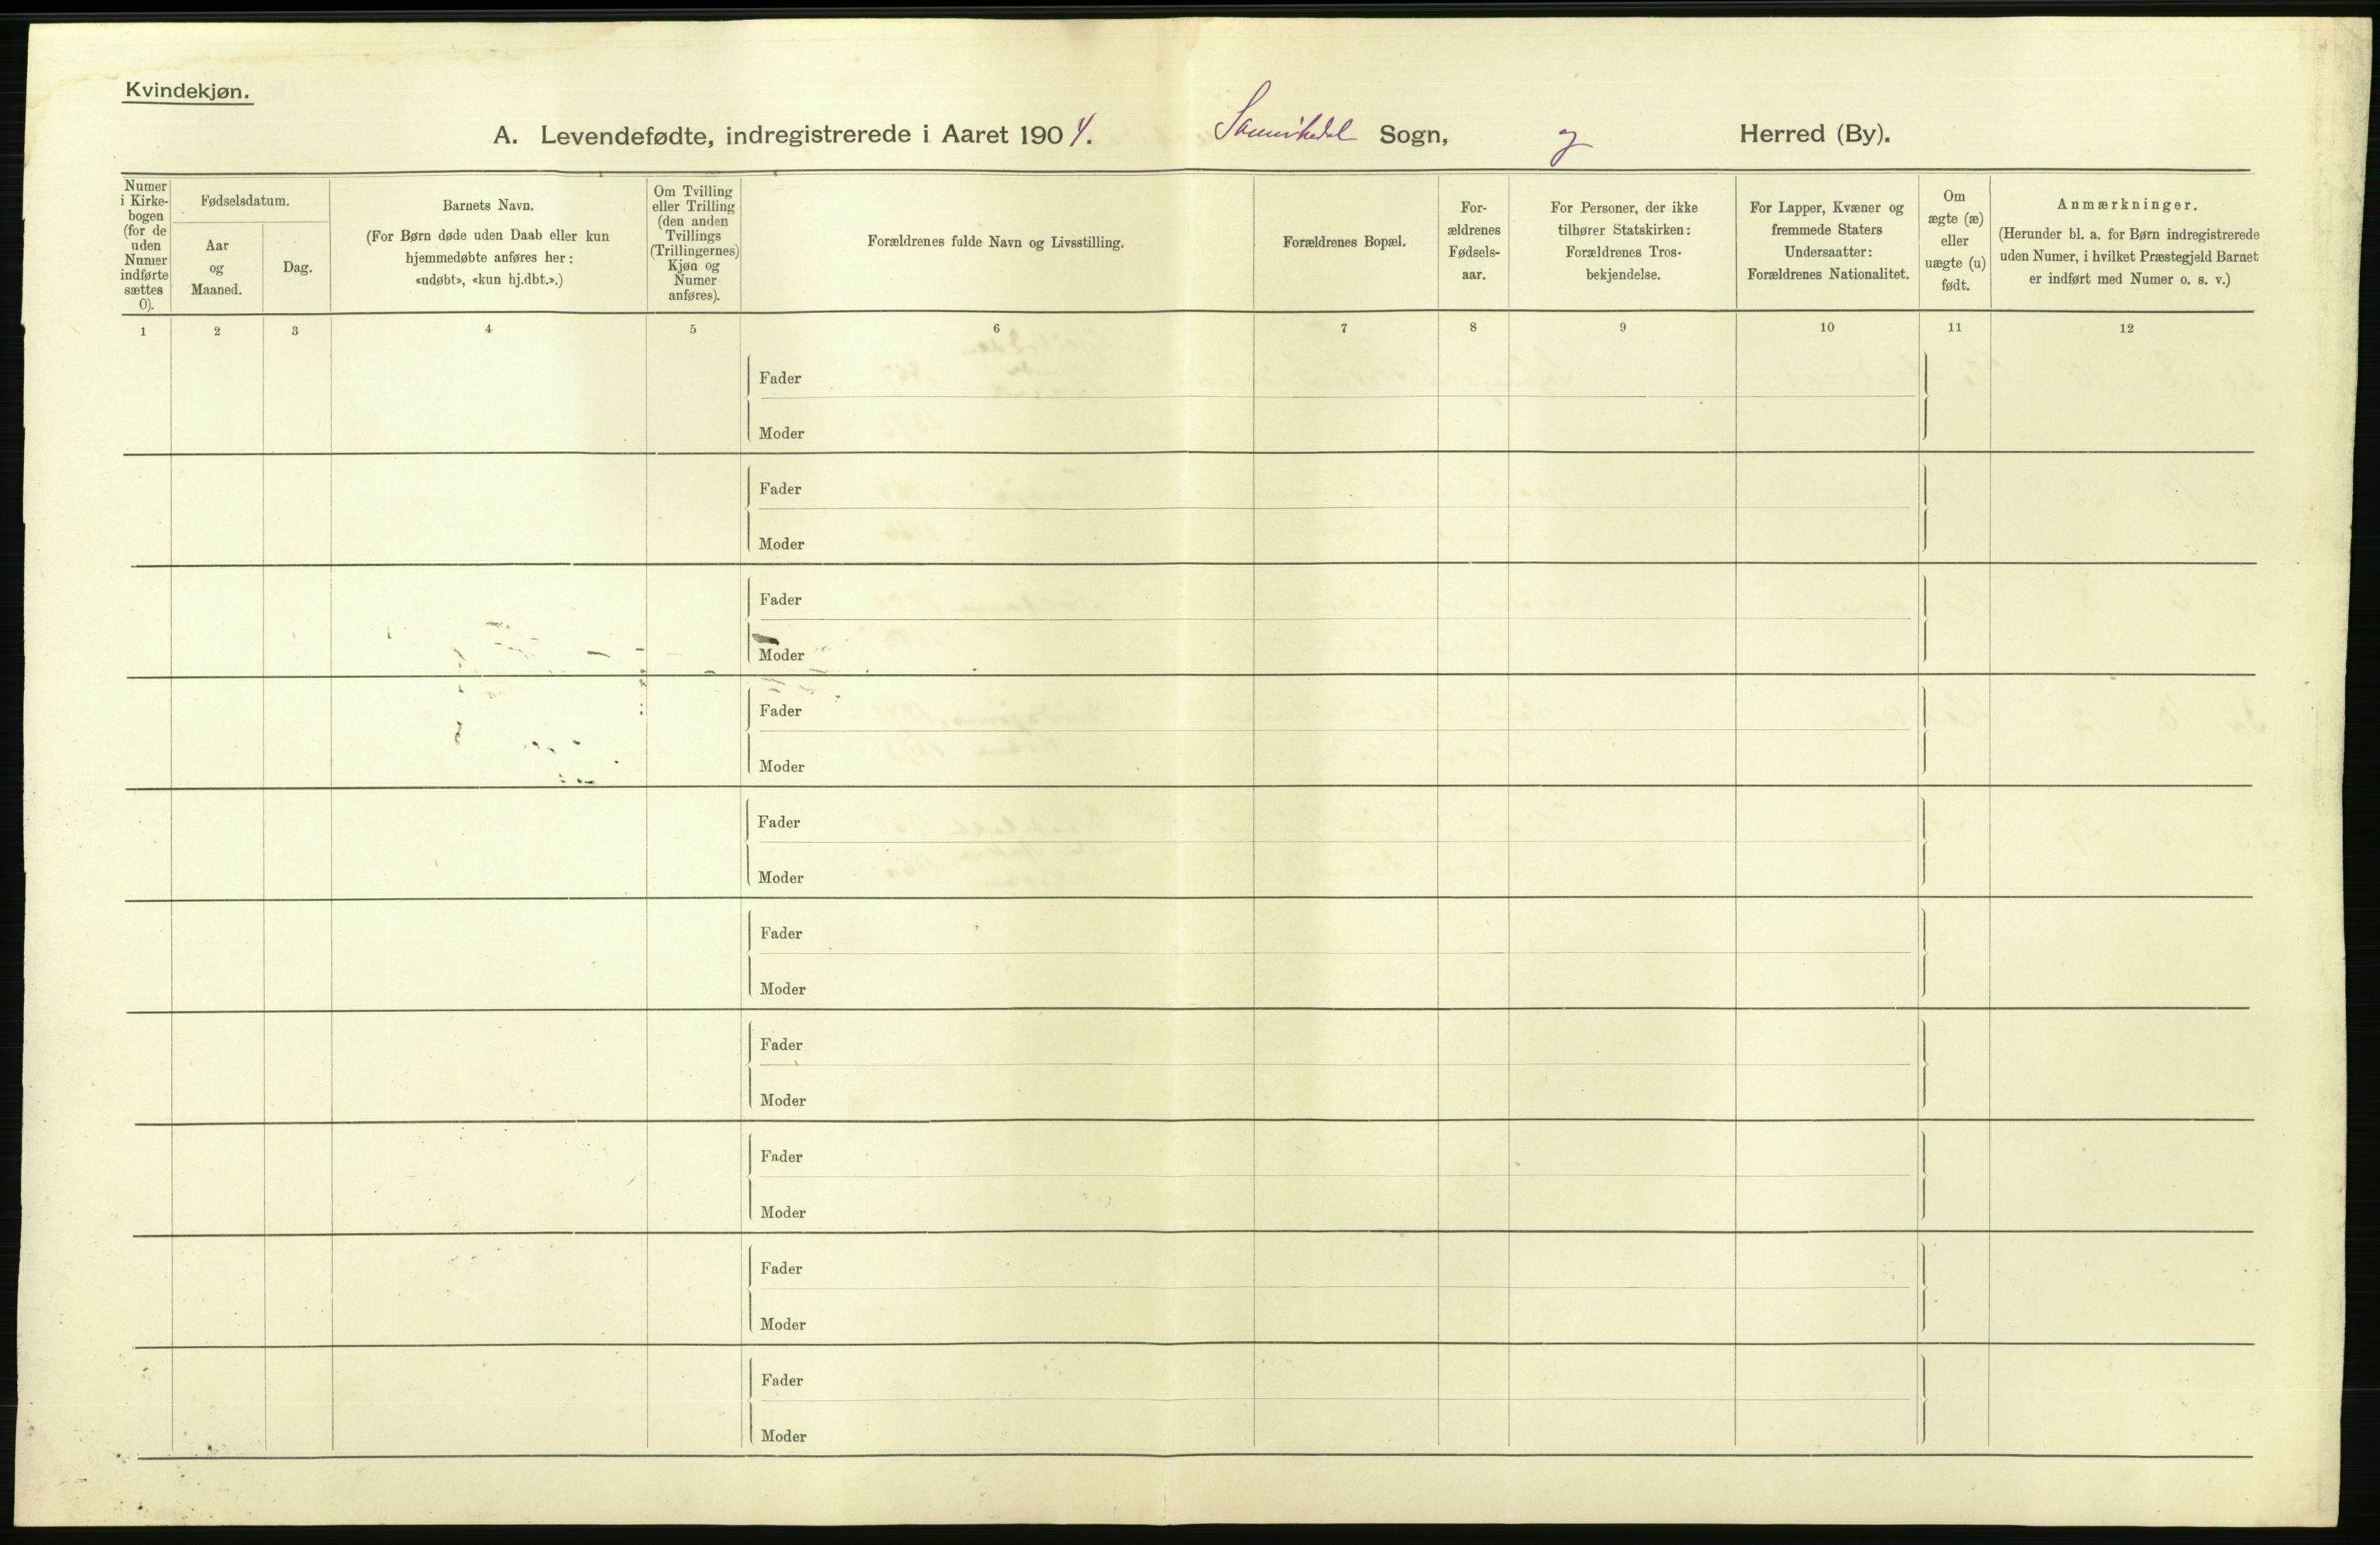 Kvindekjøn.
A. Levendefødte, indregistrerede i Aaret 1904. Sannikedal Sogn, og Herred (By).
Numer
i Kirke-
bogen
(for de
uden
Numer
indførte
sættes
0).
Fødselsdatum.
Aar
og
Maaned.
Dag.
Barnets Navn.
(For Børn døde uden Daab eller kun
hjemmedøbte anføres her:
«udøbt», «kun hj.dbt.».)
Om Tvilling
eller Trilling
(den anden
Tvillings
(Trillingernes)
Kjøn og
Numer
anføres).
Forældrenes fulde Navn og Livsstilling.
Forældrenes Bopæl.
For-
ældrenes
Fødsels-
aar.
For Personer, der ikke
tilhører Statskirken:
Forældrenes Tros-
bekjendelse.
For Lapper, Kvæner og
fremmede Staters
Undersaatter:
Forældrenes Nationalitet.
Om
ægte (æ)
eller
uægte (u)
født.
Anmærkninger.
(Herunder bl. a. for Børn indregistrerede
uden Numer, i hvilket Præstegjeld Barnet
er indført med Numer o. s. v.)
1 2 3 4 5 6 7 8 9 10 11 12
Fader
Moder
Fader
Moder
Fader
Moder
Fader
Moder
Fader
Moder
Fader
Moder
Fader
Moder
Fader
Moder
Fader
Moder
Fader
Moder